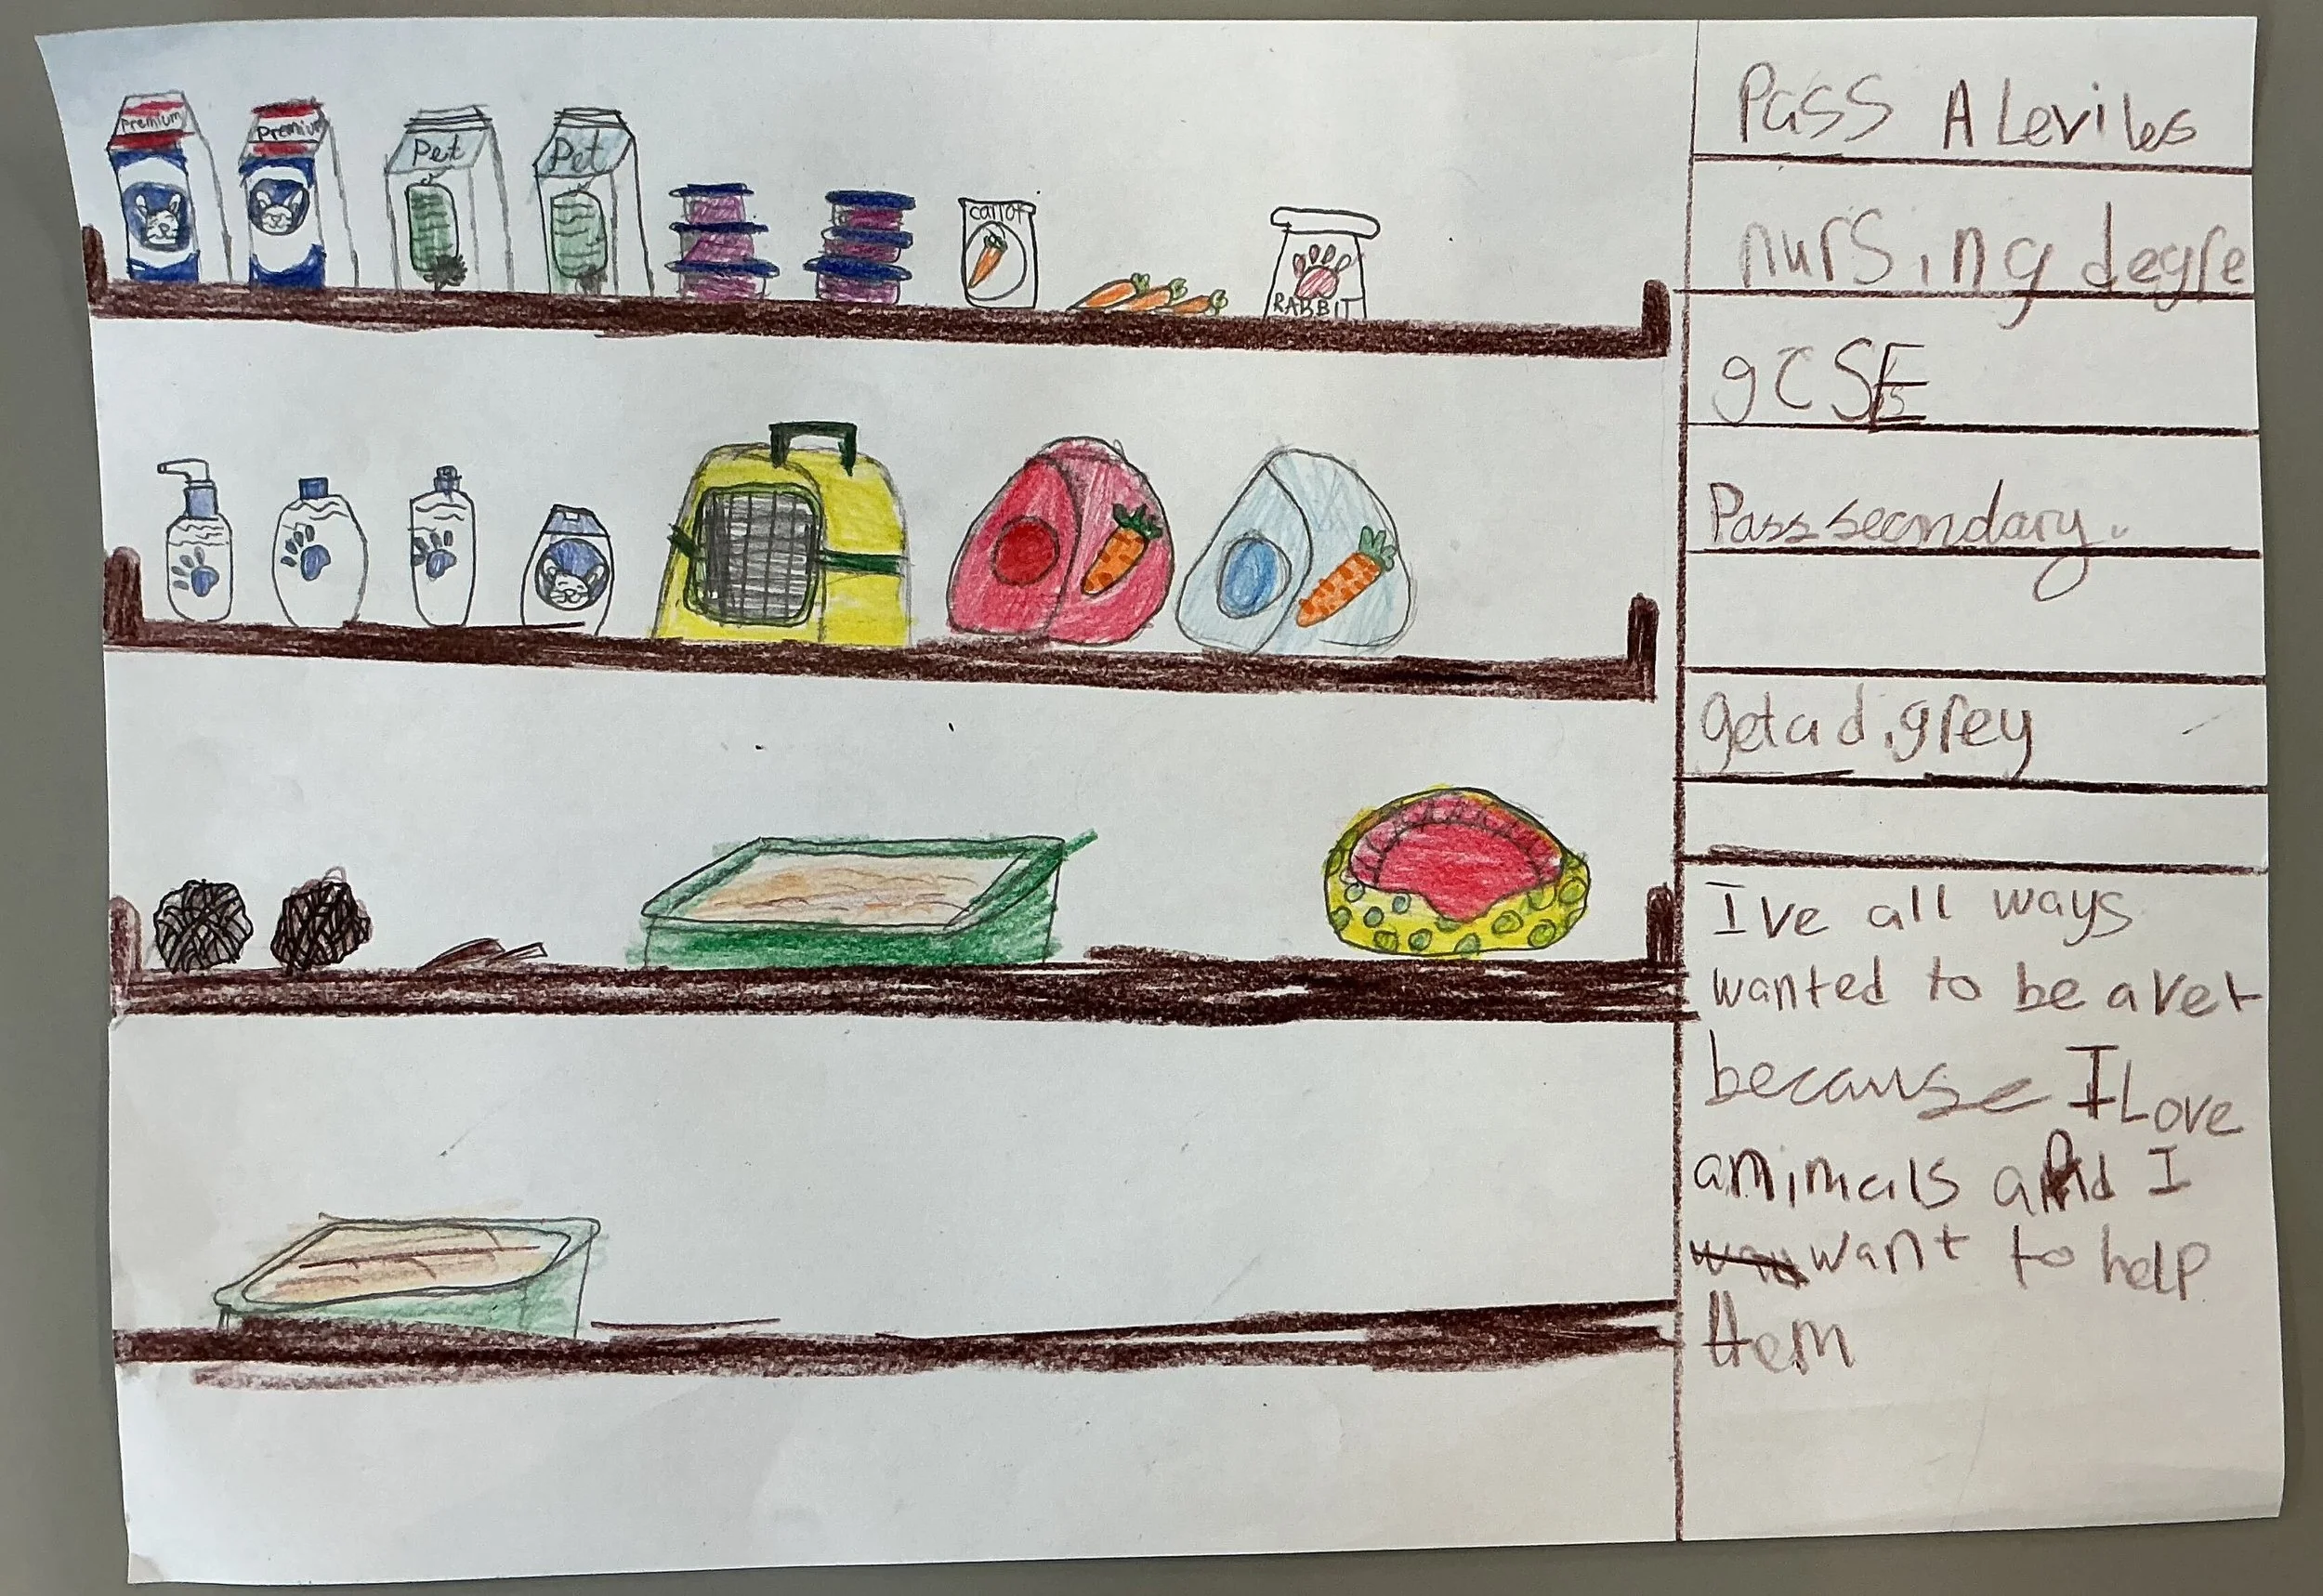 Premium
Premium
Pet
Pet
carrot
RABBIT
Pass A Levils
nursing degre
gCSE
Pass secondary.
get a digrey
Ive all ways
wanted to be a vet
because I Love
animals and I
want to help
them